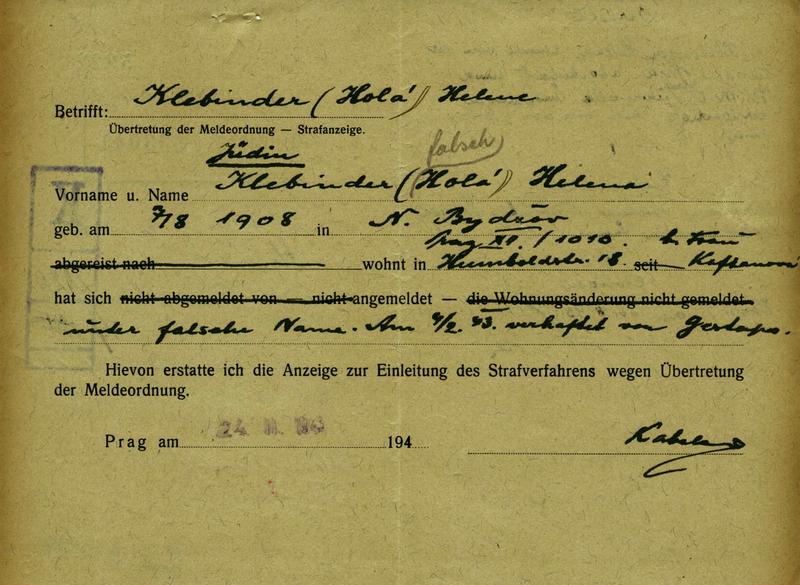 Betrifft: Klebinder (Holá) Helene
Übertretung der Meldeordnung — Strafanzeige.
Jüdin falsch
Vorname u. Name Klebinder (Holá) Helena
geb. am 7/8 1908 in N. Bydžov
Prag XII. / 1010. b. Frau
abgereist nach wohnt in Humboldstr. 18. seit
hat sich nicht abgemeldet von — nicht angemeldet — die Wohnungsänderung nicht gemeldet
unter falsche Name. Am /2. 43. verhaftet von Gestapo.
Hievon erstatte ich die Anzeige zur Einleitung des Strafverfahrens wegen Übertretung
der Meldeordnung.
Prag am 24 194